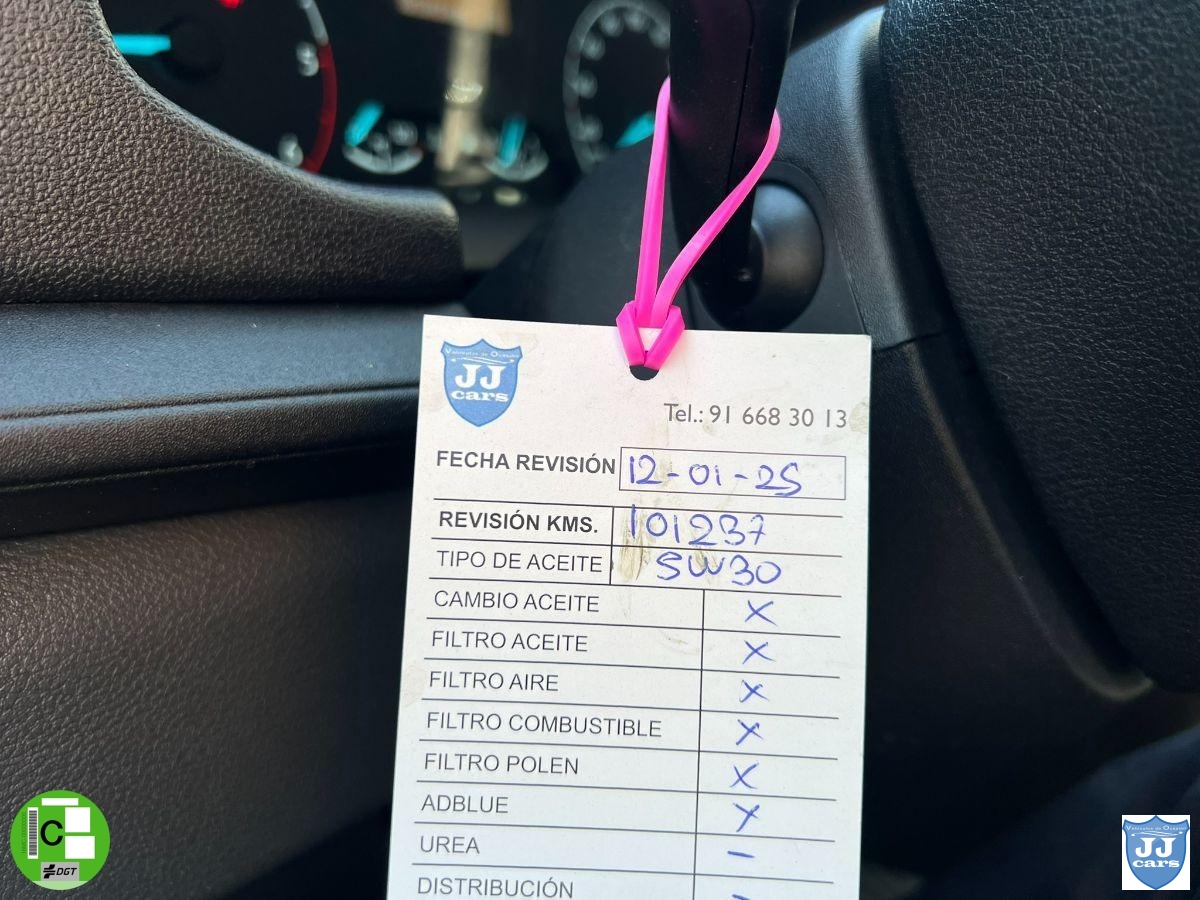 Vehículos de Ocasión
JJ
cars
Tel.: 91 668 30 13
FECHA REVISIÓN 12-01-25
REVISIÓN KMS. 101237
TIPO DE ACEITE 5W30
CAMBIO ACEITE X
FILTRO ACEITE X
FILTRO AIRE X
FILTRO COMBUSTIBLE X
FILTRO POLEN X
ADBLUE X
UREA -
DISTRIBUCIÓN -
C
DGT
Vehículos de Ocasión
JJ
cars